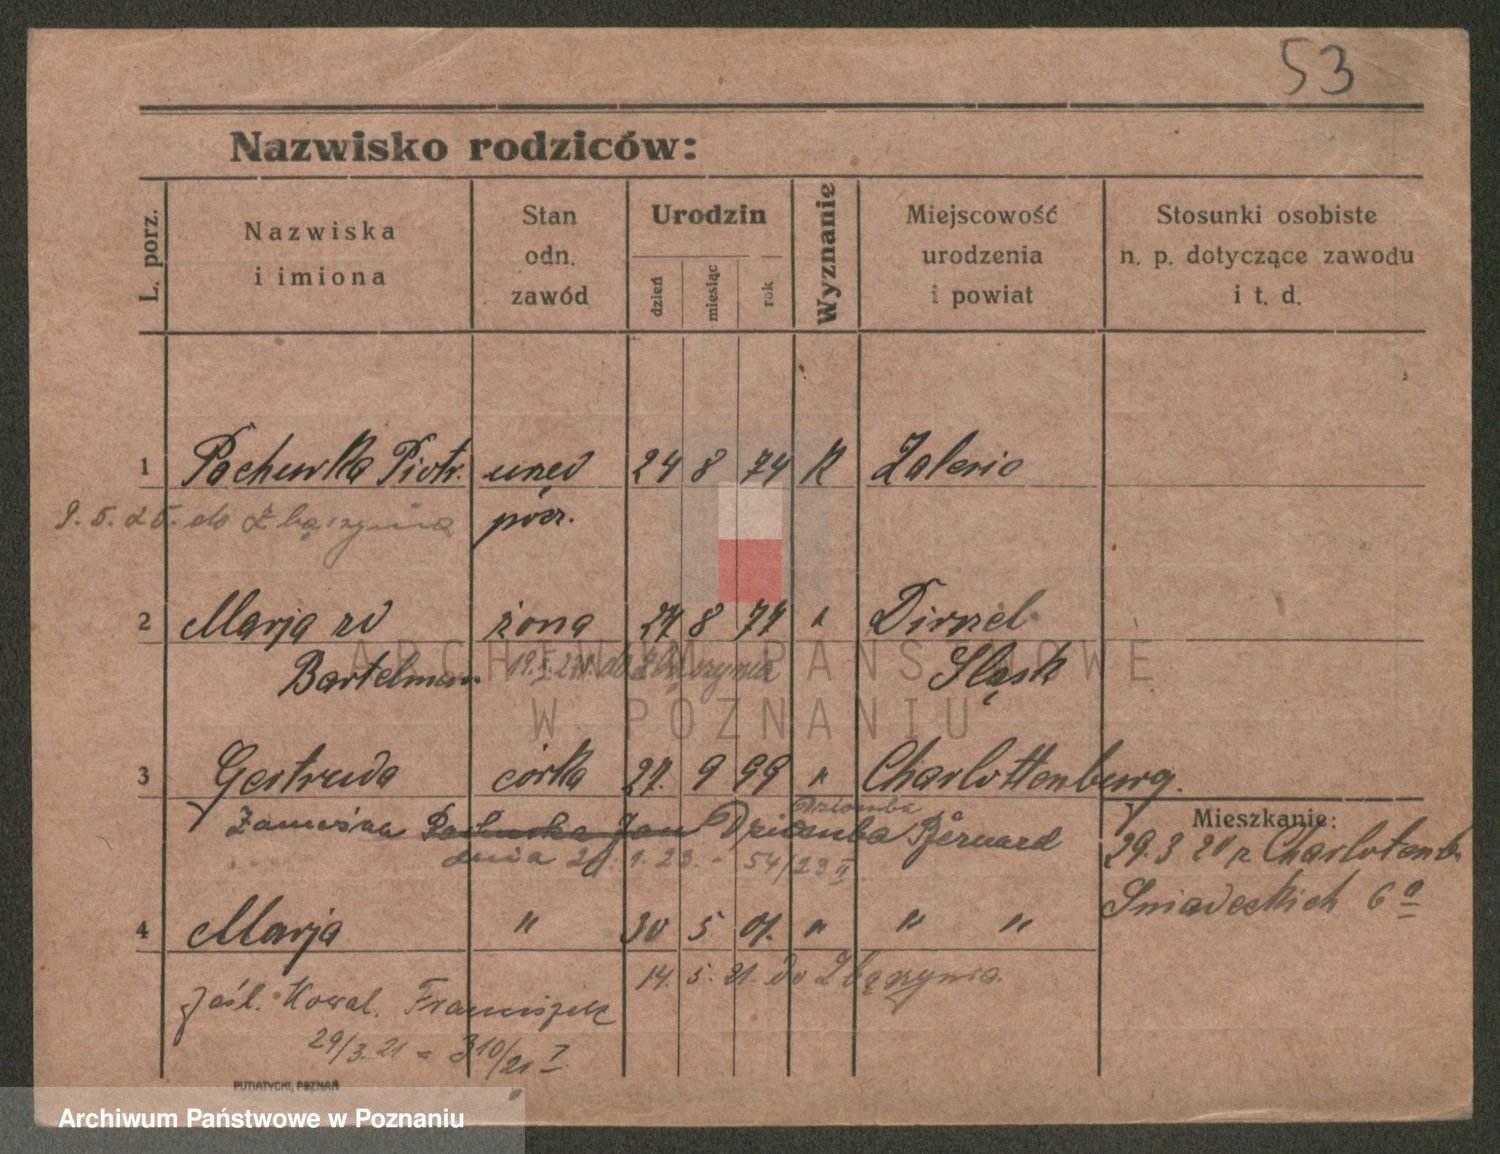 53
Nazwisko rodziców:
L. porz.
Nazwiska
i imiona
Stan
odn.
zawód
Urodzin
dzień
miesiąc
rok
Wyznanie
Miejscowość
urodzenia
i powiat
Stosunki osobiste
n. p. dotyczące zawodu
i t. d.
1 Pachurka Piotr. urzęd 24 8 74 K Zalesie
9. 5. 25. do Zbąszynia poczt.
2 Marja zd żona 27 8 77 "
Bartelman 19. X. 21. do Zbąszynia Śląsk
3 Gertruda córka 27. 9 99 " Charlottenburg.
Dziomba
Zamężna Jan Dziomba Bernard
dnia 20. 1. 23. - 54/23 II.
Mieszkanie:
29. 3 20 z Charlotenb
Śniadeckich 6a
4 Marja " 30 5 01. " " "
14. 5. 21. do Zbąszynia.
zaśl. Kowal. Franciszek
29/3. 21 = 310/21 I
PUTIATYCKI, POZNAŃ
ARCHIWUM PAŃSTWOWE
W POZNANIU
Archiwum Państwowe w Poznaniu